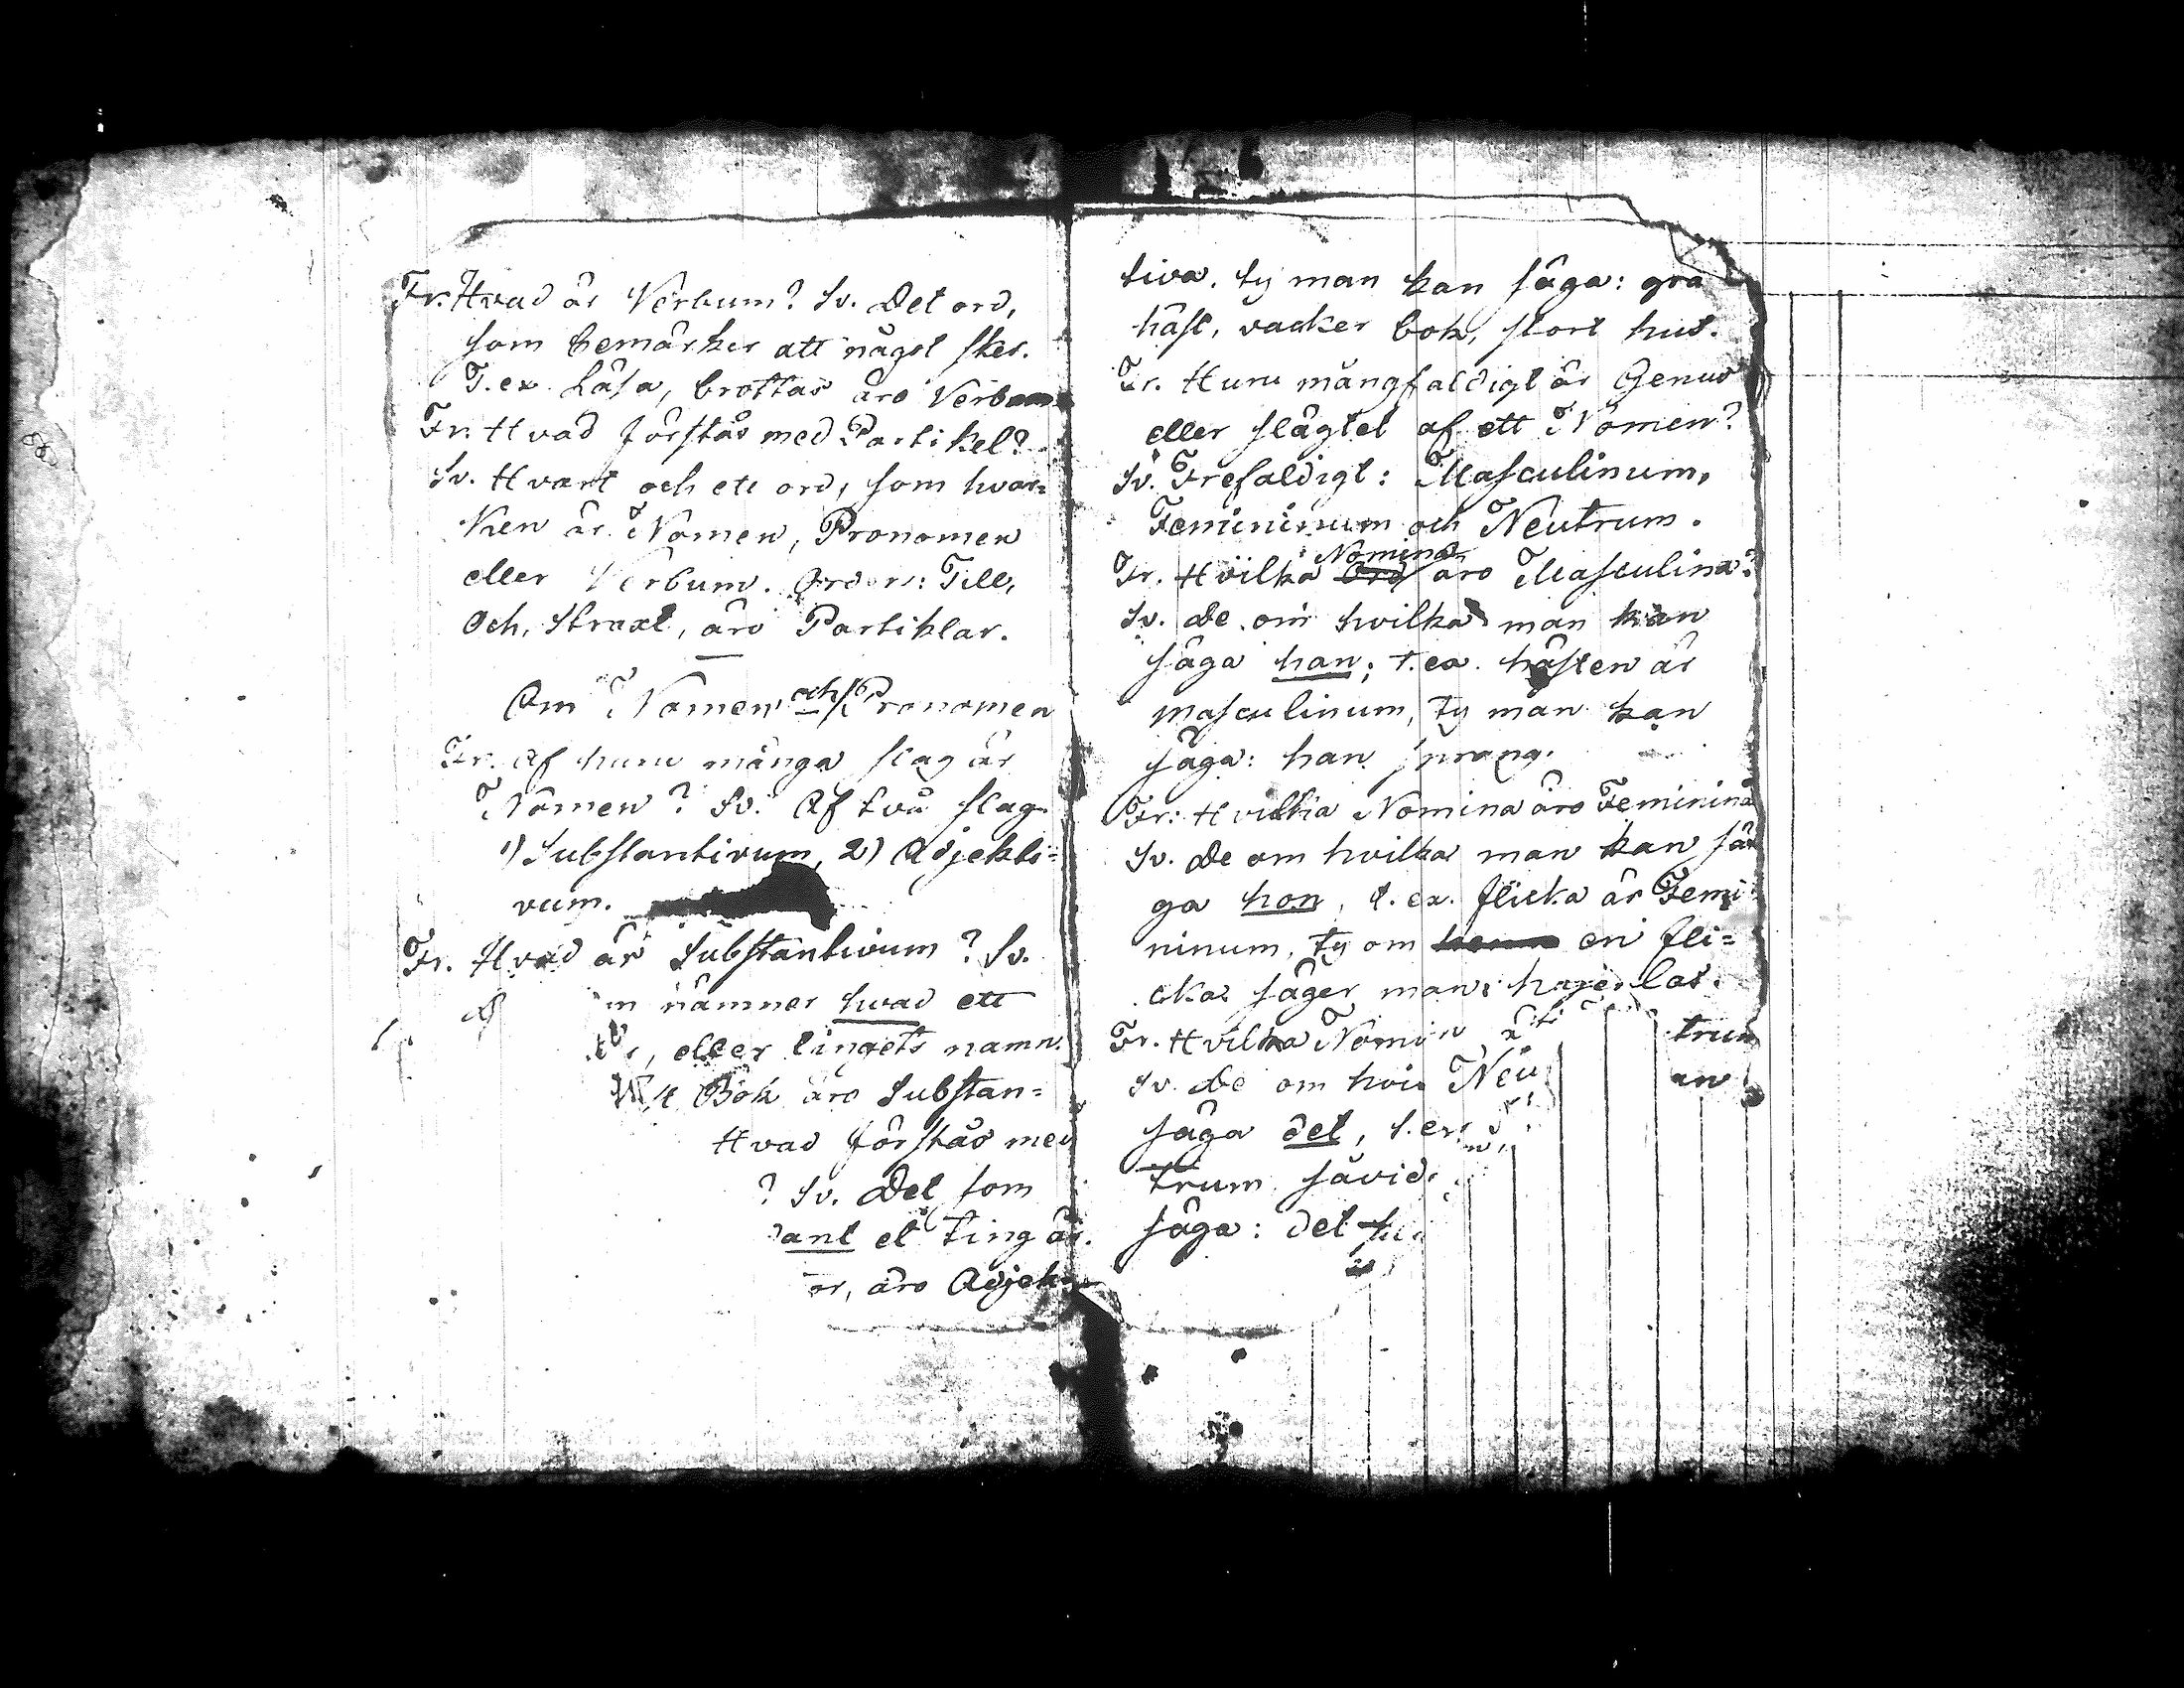 Fr. Hvad är Verbum? Sv. Det ord,
som bemärker att något sker.
T.ex. Läsa, brottas äro Verbum
Fr. Hvad förstås med Partikel?
Sv. Hvart och ett ord, som hvar-
ken är Nomen, Pronomen
eller Verbum. Orden: Till,
Och, Straxt, äro Partiklar.
Om Nomen och Pronomen
Fr. Af huru många slag är
Nomen? Sv. Af två slag.
1) Substantivum, 2) Adjekti-
vum.
Fr. Hvad är Substantivum? Sv.
nämner hvad ett
eller tingets namn.
Bok äro Substan-
Hvad förstås med
? Sv. Det som
dant et ting är.
or, äro Adjek
tiva. ty man kan säga: grå
häst, vacker bok, stort hus.
Fr. Huru mångfaldigt är Genus
eller slägtet af ett Nomen?
Sv. Trefaldigt: Masculinum,
Femininum och Neutrum.
Fr. Hvilka Ord Nomina äro Masculina?
Sv. De om hvilka man kan
säga han; t.ex. hästen är
masculinum, ty man kan
säga: han sprang.
Fr. Hvilka Nomina äro Feminina
Sv. De om hvilka man kan sä
ga hon, t.ex. flicka är Femi
ninum, ty om en fli-
cka säger man: las.
Fr. Hvilka Nomin trum
Sv. De om hvi Neu an
säga det, t.ex.
trum såvid
säga: det